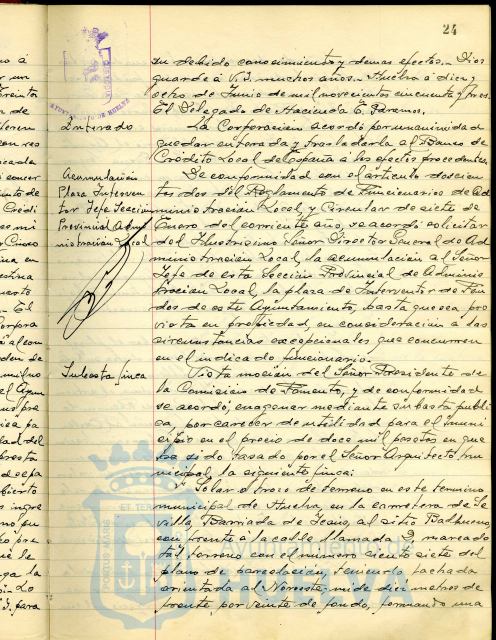 24
su debido conocimiento y demas efectos.- Dios
guarde á V. I. muchos años.- Huelva á diez y
ocho de Junio de mil novecientos cincuenta y tres.
El Delegado de Hacienda E. Páramos.
Enterado
La Corporación acordó por unanimidad
quedar enterada y trasladarla al Banco de
Crédito Local de España a los efectos procedentes.
Acumulación
Plaza Interven
tor Jefe Sección
Provincial Admi
nistración Local
De conformidad con el artículo doscien
tos dos del Reglamento de Funcionarios de Ad
ministración Local y Circular de siete de
Enero del corriente año, se acordó solicitar
del Ilustrísimo Señor Director General de Ad
ministración Local, la acumulación al Señor
Jefe de esta Sección Provincial de Adminis
tración Local, la plaza de Interventor de Fon
dos de este Ayuntamiento, hasta que sea pro
vista en propiedad, en consideración a las
circunstancias excepcionales que concurren
en el indicado funcionario.
Subasta finca
Vista moción del Señor Presidente de
la Comisión de Fomento, y de conformidad
se acordó, enagenar mediante subasta públi
ca, por carecer de utilidad para el muni
cipio en el precio de doce mil pesetas en que
ha sido tasado por el Señor Arquitecto mu
nicipal, la siguiente finca:
Solar ó trozo de terreno en este termino
municipal de Huelva, en la carretera de Se
villa, Barriada de Icaio, al sitio Balbueno,
con frente á la calle llamada marcado
tal terreno con el número ciento siete del
plano de parcelación, teniendo fachada
orientada al Noroeste; mide diez metros de
frente, por veinte de fondo, formando una
AYUNTAMIENTO DE HUELVA
PORTUS MARIS ET TERRAE
HUELVA